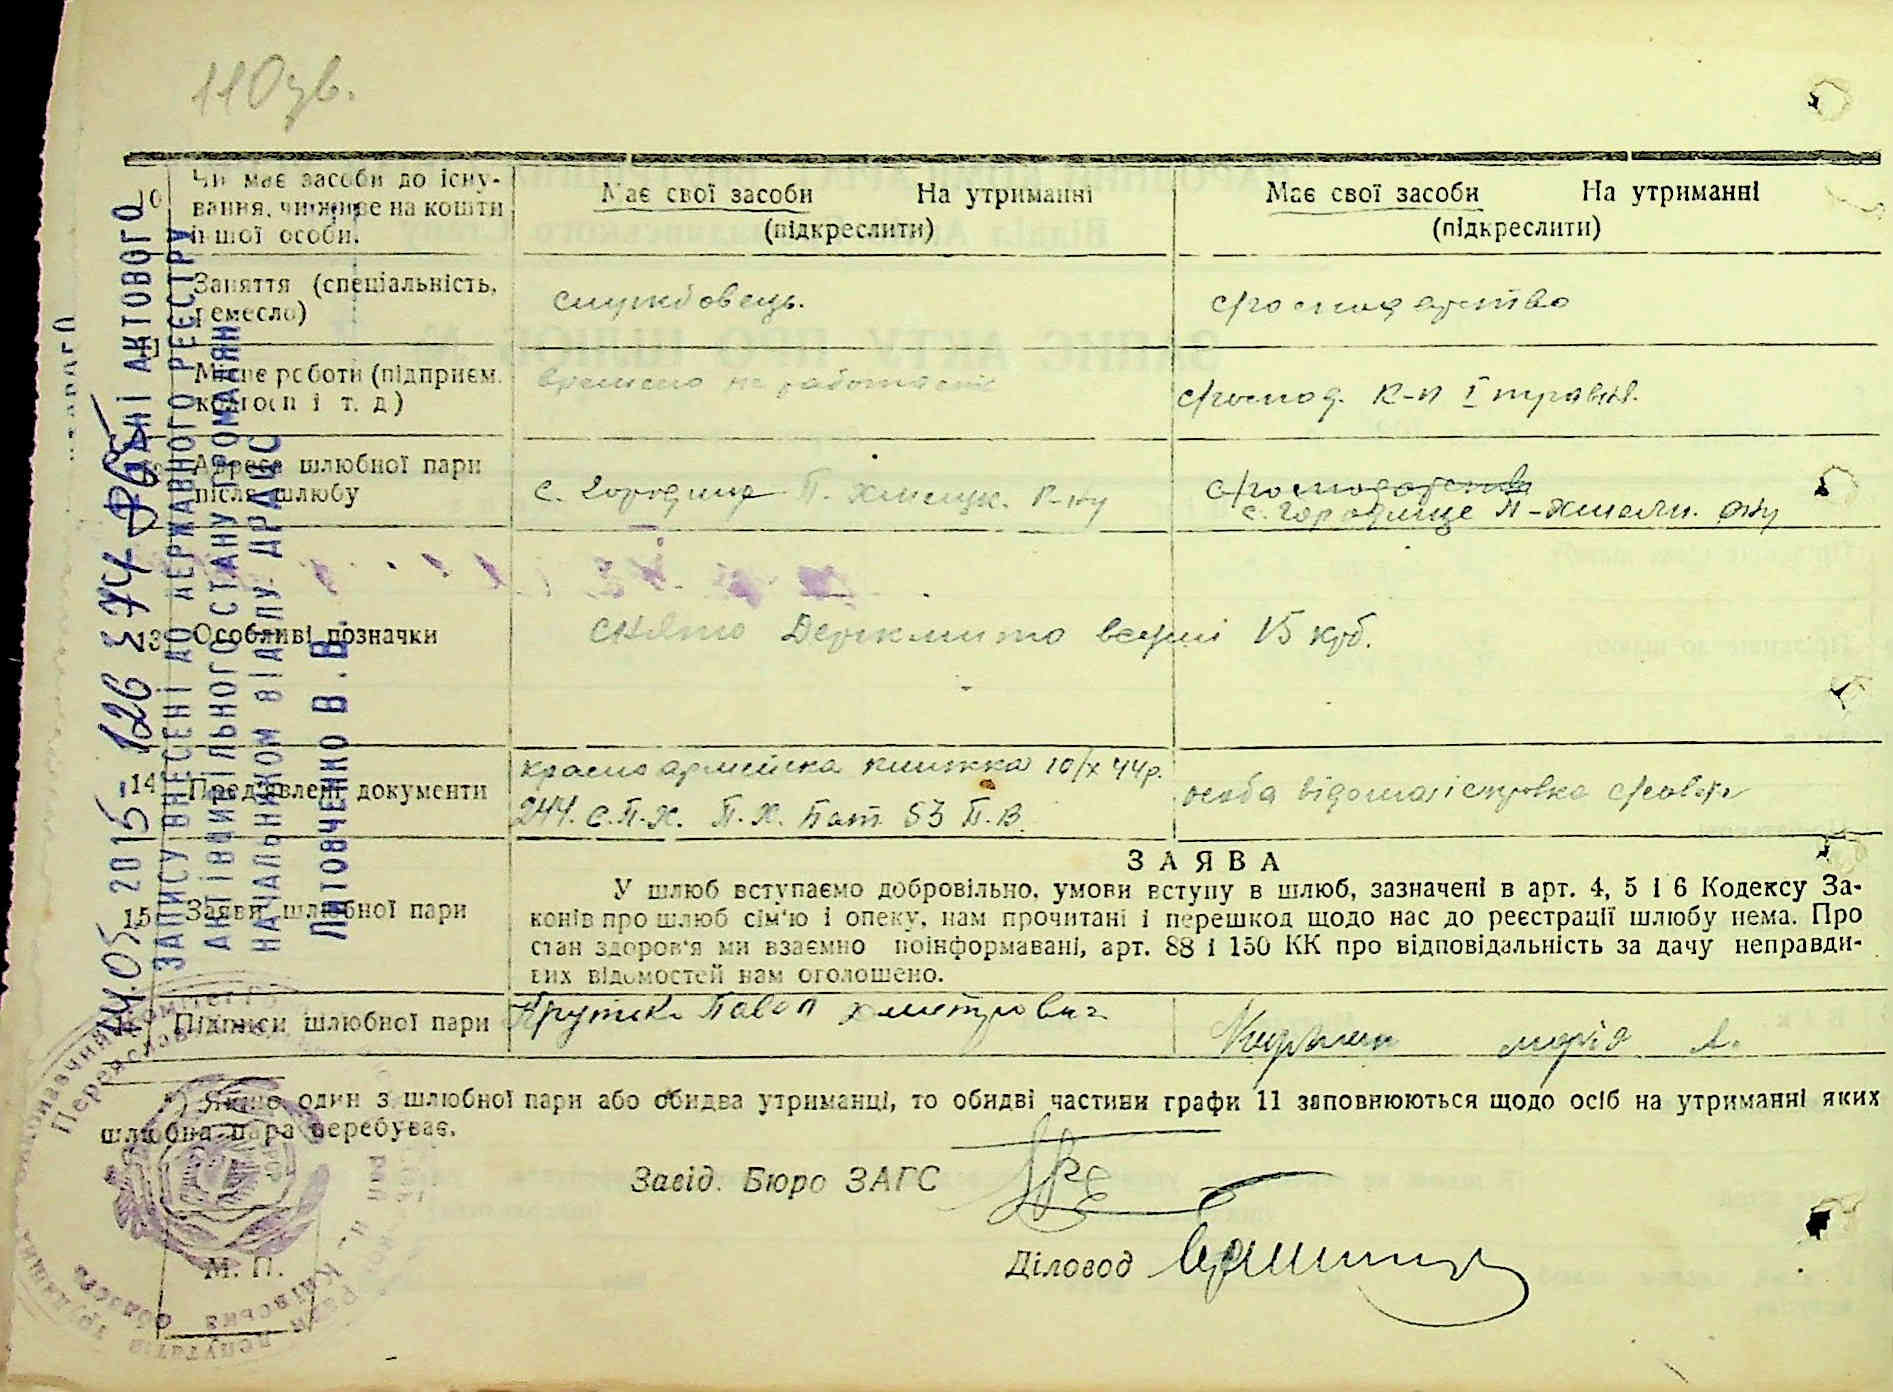 110 зв.
10 Чи має засоби до існу-
вання, чи живе на кошти
іншої особи.
Має свої засоби На утриманні
(підкреслити)
Має свої засоби На утриманні
(підкреслити)
Заняття (спеціальність,
ремесло)
службовець.
11
Місце роботи (підприєм.
колгосп і т. д)
К-п І травня.
Адреса шлюбної пари
після шлюбу
с. Городище П. Хмельн. Р-ну
с. Городище П-Хмельн. р-ну
13 Особливі позначки
Знято Держмито в сумі 15 крб.
14 Пред'явлені документи
красно армейска книжка 10/X 44р.
244. С.П.Х. П.Х. Бат 53 П.В.
особа відома
15 Заяви шлюбної пари
ЗАЯВА
У шлюб вступаємо добровільно, умови вступу в шлюб, зазначені в арт. 4, 5 і 6 Кодексу За-
конів про шлюб сім'ю і опеку, нам прочитані і перешкод щодо нас до реєстрації шлюбу нема. Про
стан здоров'я ми взаємно поінформавані, арт. 88 і 150 КК про відповідальність за дачу неправди-
вих відомостей нам оголошено.
Підписи шлюбної пари
Павол Дмитрович
марія А.
*) Якщо один з шлюбної пари або обидва утриманці, то обидві частини графи 11 заповнюються щодо осіб на утриманні яких
шлюбна пара перебуває.
Завід. Бюро ЗАГС
Діловод
М. П.
Київська
область
депутатів
14.05.2015-126
ДАНІ АКТОВОГО
ЗАПИСУ ВНЕСЕНІ ДО ДЕРЖАВНОГО РЕЄСТРУ
АКТІВ ЦИВІЛЬНОГО СТАНУ ГРОМАДЯН
НАЧАЛЬНИКОМ ВІДДІЛУ ДРАЦС
В.В.